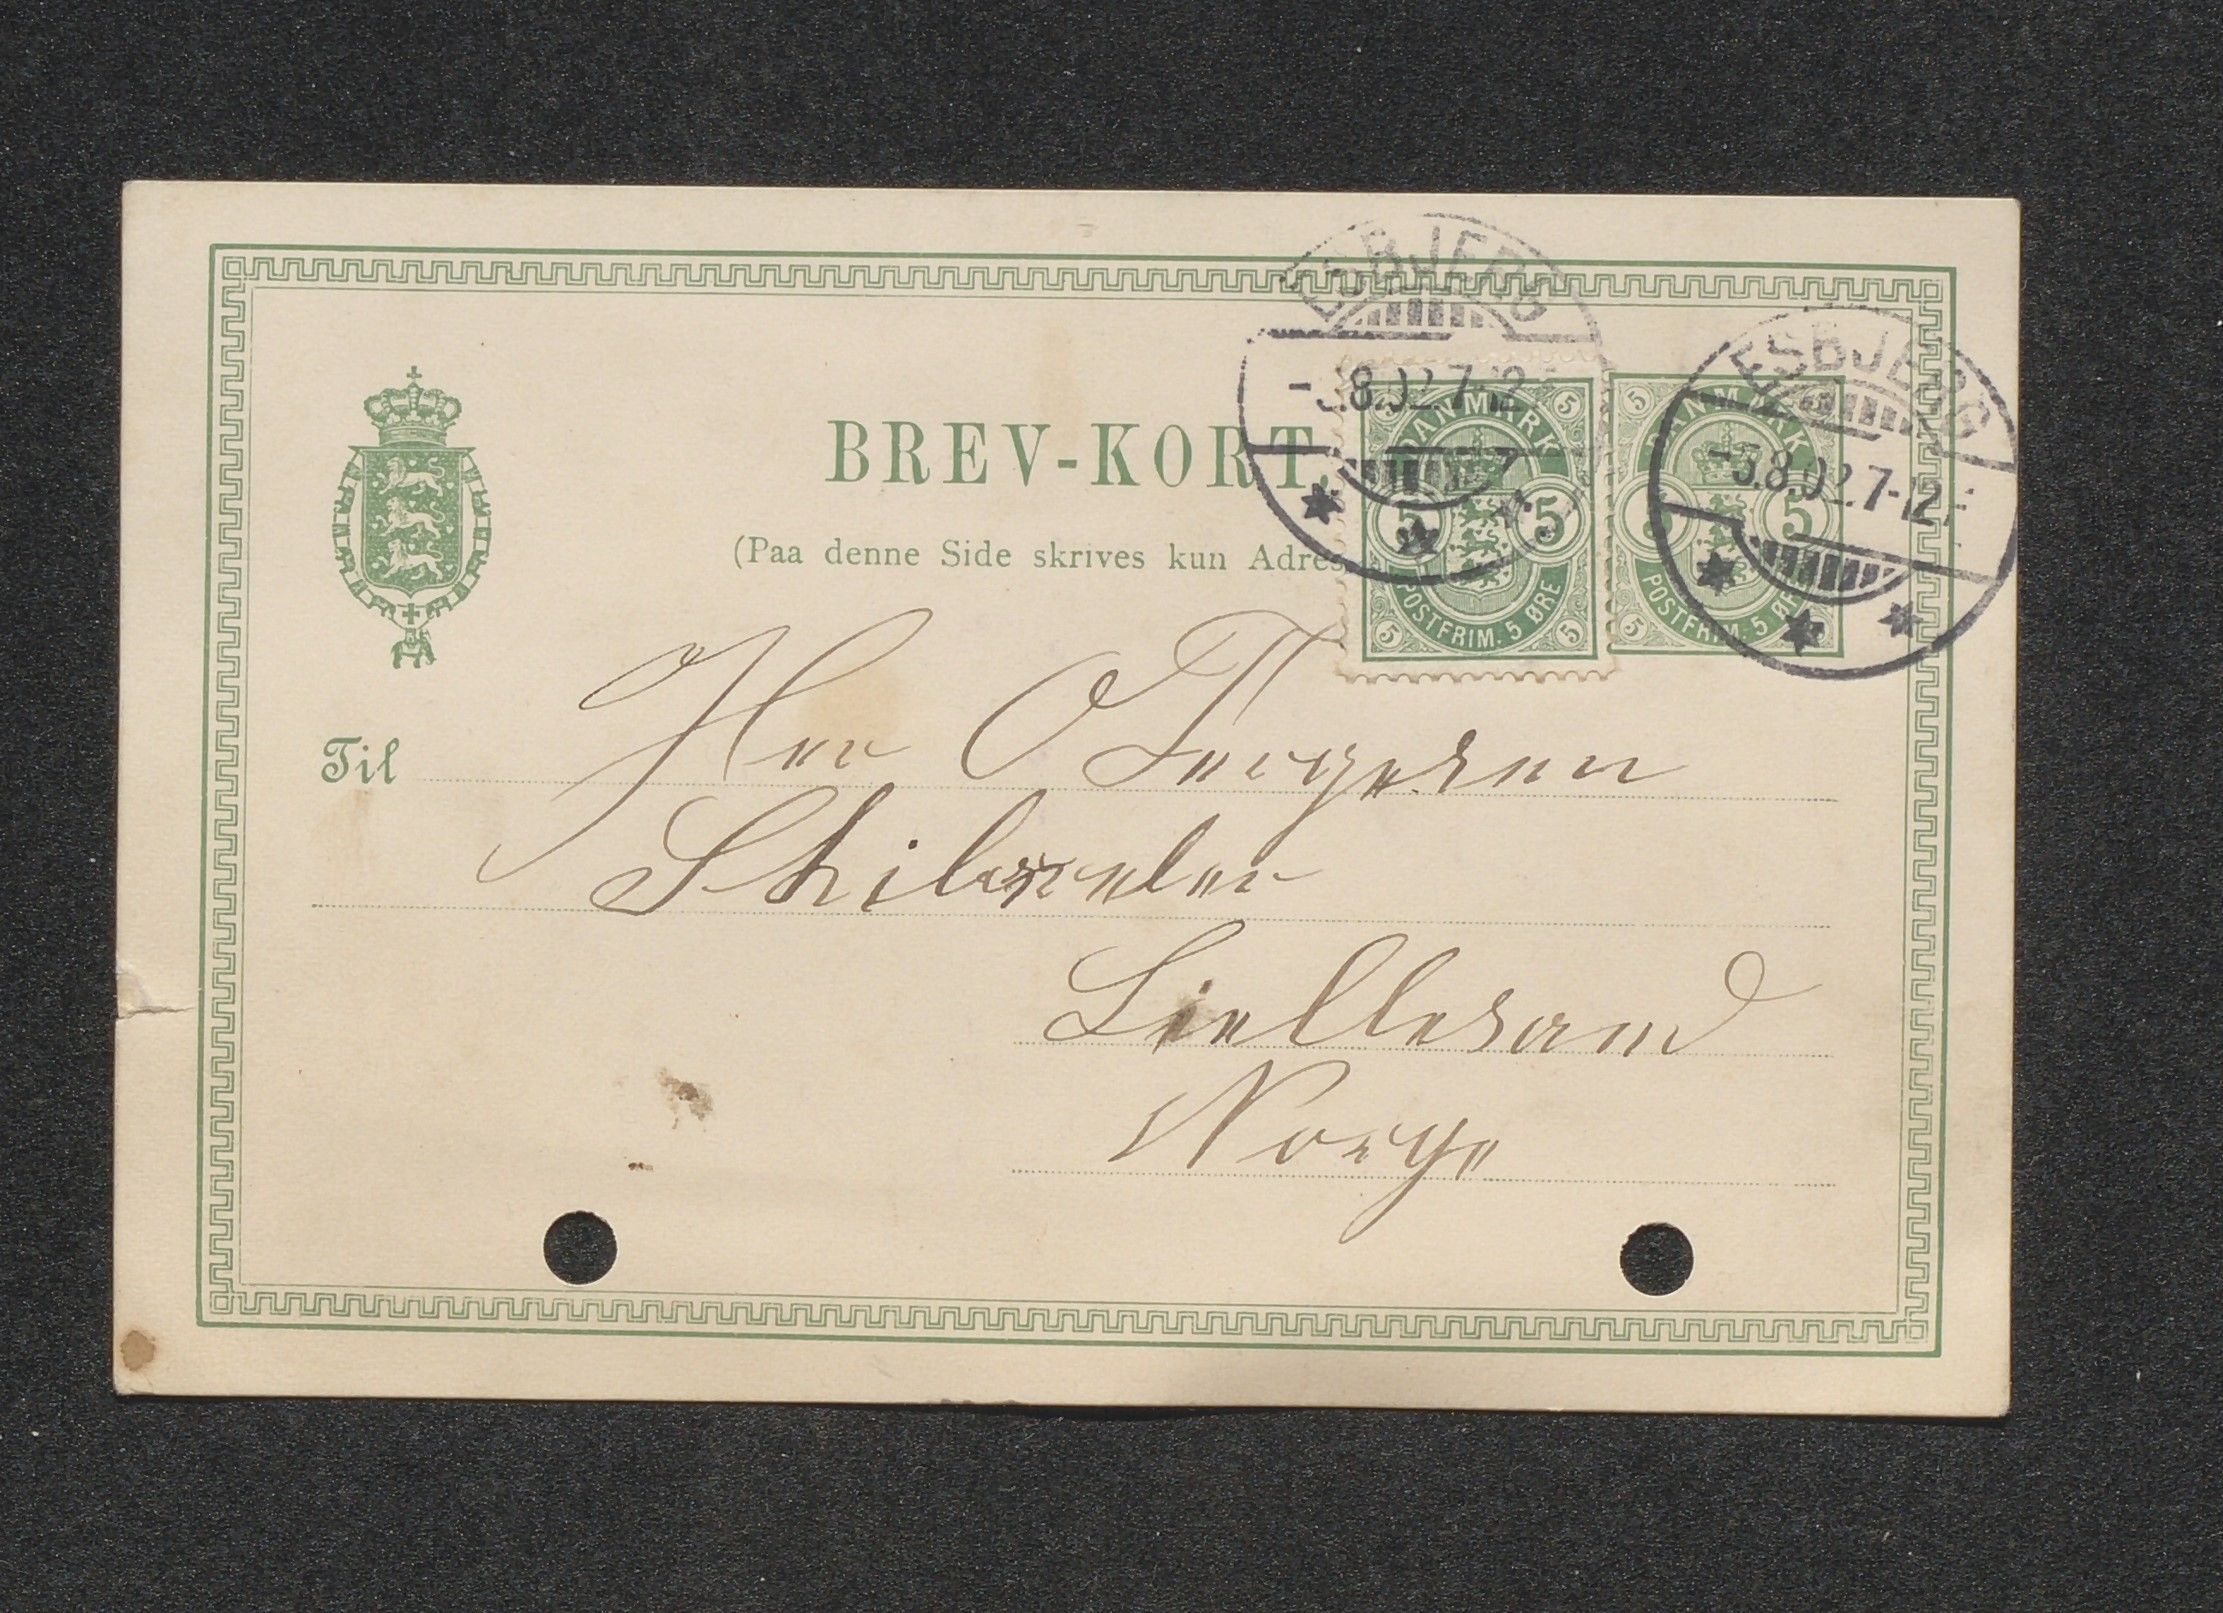 ESBJERG
-3.8.02.7-12 F
ESBJERG
-3.8.02.7-12 F
BREV-KORT.
(Paa denne Side skrives kun Adres
DANMARK
5 5
POSTFRIM. 5 ØRE
DANMARK
5 5
POSTFRIM. 5 ØRE
Til Herr O Tergesen
Skibsreder
Liellesand
Norge